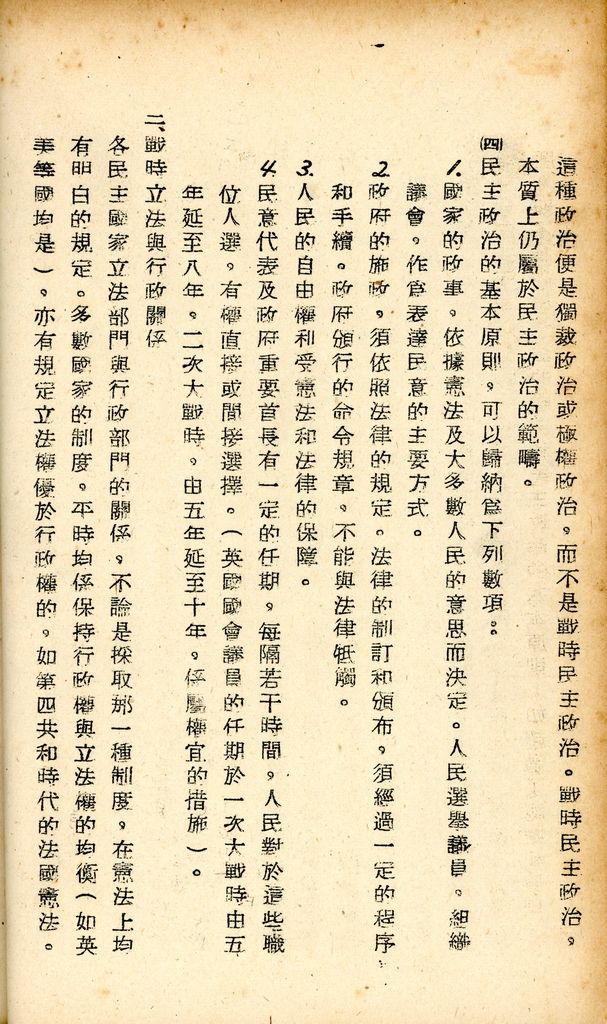 這種政治便是獨裁政治或極權政治，而不是戰時民主政治。戰時民主政治，
本質上仍屬於民主政治的範疇。
㈣民主政治的基本原則，可以歸納爲下列數項：
1.國家的政事，依據憲法及大多數人民的意思而決定。人民選舉議員，組織
議會，作爲表達民意的主要方式。
2.政府的施政，須依照法律的規定。法律的制訂和頒布，須經過一定的程序
和手續。政府頒行的命令規章，不能與法律牴觸。
3.人民的自由權利受憲法和法律的保障。
4.民意代表及政府重要首長有一定的任期，每隔若干時間，人民對於這些職
位人選，有權直接或間接選擇。（英國國會議員的任期於一次大戰時由五
年延至八年，二次大戰時，由五年延至十年，係屬權宜的措施）。
二、戰時立法與行政關係
各民主國家立法部門與行政部門的關係，不論是採取那一種制度，在憲法上均
有明白的規定。多數國家的制度，平時均係保持行政權與立法權的均衡（如英
美等國均是）。亦有規定立法權優於行政權的，如第四共和時代的法國憲法。